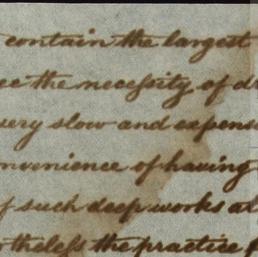 contain the largest
ee the necessity of d
very slow and expens
nvenience of having
f such deep works al
theless the practice